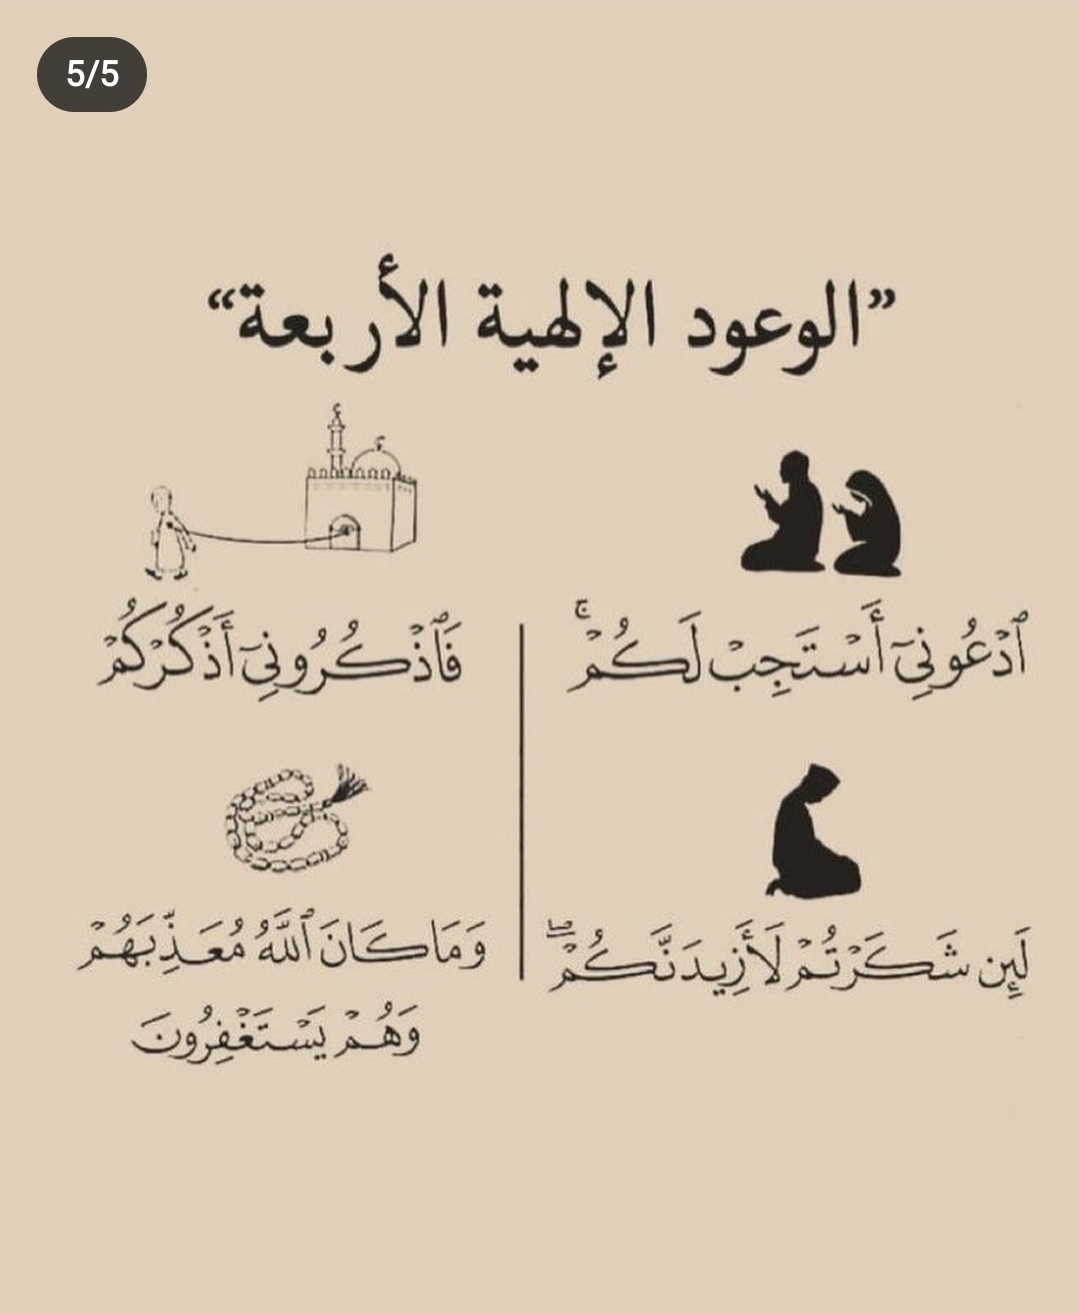 5/5
”الوعود الإلهية الأربعة“
ٱدْعُونِىٓ أَسْتَجِبْ لَكُمْ ۚ
فَٱذْكُرُونِىٓ أَذْكُرْكُمْ
لَئِن شَكَرْتُمْ لَأَزِيدَنَّكُمْ ۖ
وَمَا كَانَ ٱللَّهُ مُعَذِّبَهُمْ
وَهُمْ يَسْتَغْفِرُونَ